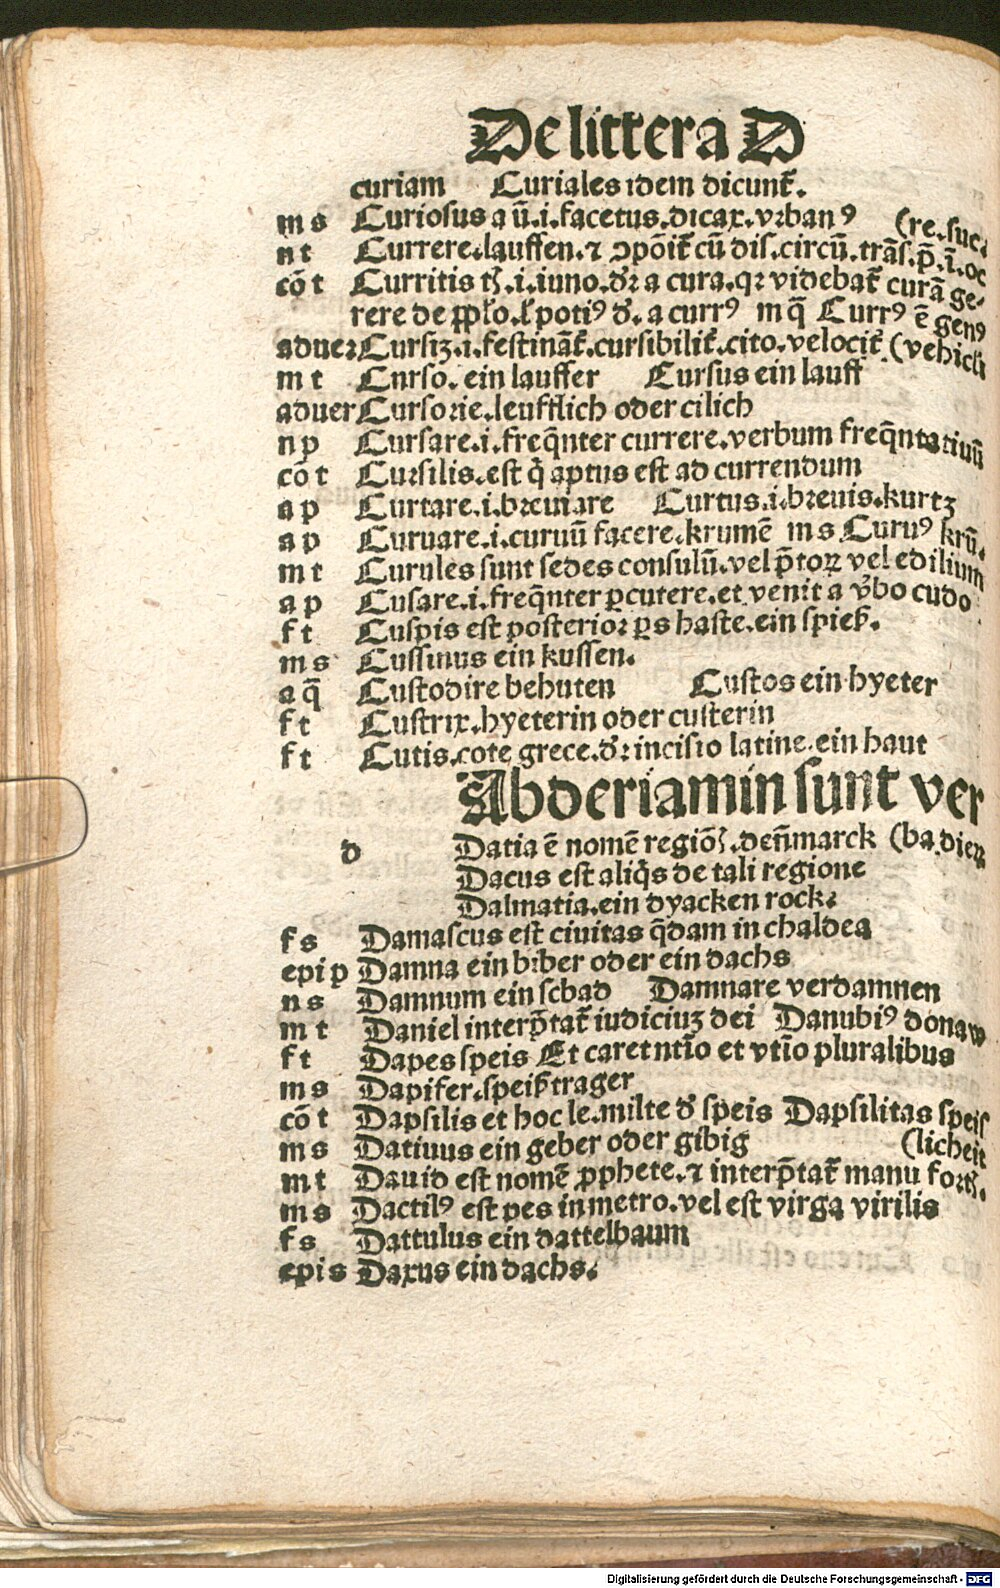 De littera D
curiam Curiales idem dicunt̄.
m s Curiosus a ū.i.facetus.dicax.vrban⁹ (re.suc.
n t Currere.lauffen.⁊ ↄpōit̄ cū dis.circū.trās.p̄.ī.oc
cō t Curritis tꝫ.i.iuno.dr̄ a cura.qꝛ videbat̄ curā ge⸗
rere de ꝓplo.ł poti⁹ d̄.a curr⁹ m q̄ Curr⁹ ē gen⁹
aduer Cursiꝫ.i.festināt̄.cursibilit̄.cito.velocit̄ (vehicli
m t Cnrso.ein lauffer Cursus ein lauff
aduer Cursorie.leufflich oder cilich
n p Cursare.i.freq̄nter currere.verbum freq̄ntatiuū
cō t Cursilis.est q̄ aptus est ad currendum
a p Curtare.i.breuiare Curtus.i.breuis.kurtz
a p Curuare.i.curuū facere.krumē m s Curu⁹ krū.
m t Curules sunt sedes consulū.vel p̄toꝝ vel edilium
a p Cusare.i.freq̄nter ꝑcutere.et venit a v̄bo cudo
f t Cuspis est posterior ꝑs haste.ein spieß.
m s Cussinus ein kussen.
a q̄ Custodire behuten Custos ein hyeter
f t Custrix.hyeterin oder custerin
f t Cutis.cote grece.dr̄ incisio latine.ein haut
Abderiamin sunt ver
d Datia ē nomē regiōꝭ.den̄marck (ba.dieꝝ
Dacus est aliq̄s de tali regione
Dalmatia.ein dyacken rock.
f s Damascus est ciuitas q̄dam in chaldea
epi p Damna ein biber oder ein dachs
n s Damnum ein schad Damnare verdamnen
m t Daniel interp̄tat̄ iudiciuꝫ dei Danubi⁹ donaw
f t Dapes speis Et caret ntīo et vtīo pluralibus
m s Dapifer.speißtrager
cō t Dapsilis et hoc le.milte d̄ speis Dapsilitas speis
m s Datiuus ein geber oder gibig (licheit
m t Dauid est nomē ꝓphete.⁊ interp̄tat̄ manu fortꝭ.
m s Dactil⁹ est pes in metro.vel est virga virilis
f s Dattulus ein dattelbaum
epi s Daxus ein dachs.
Digitalisierung gefördert durch die Deutsche Forschungsgemeinschaft - DFG